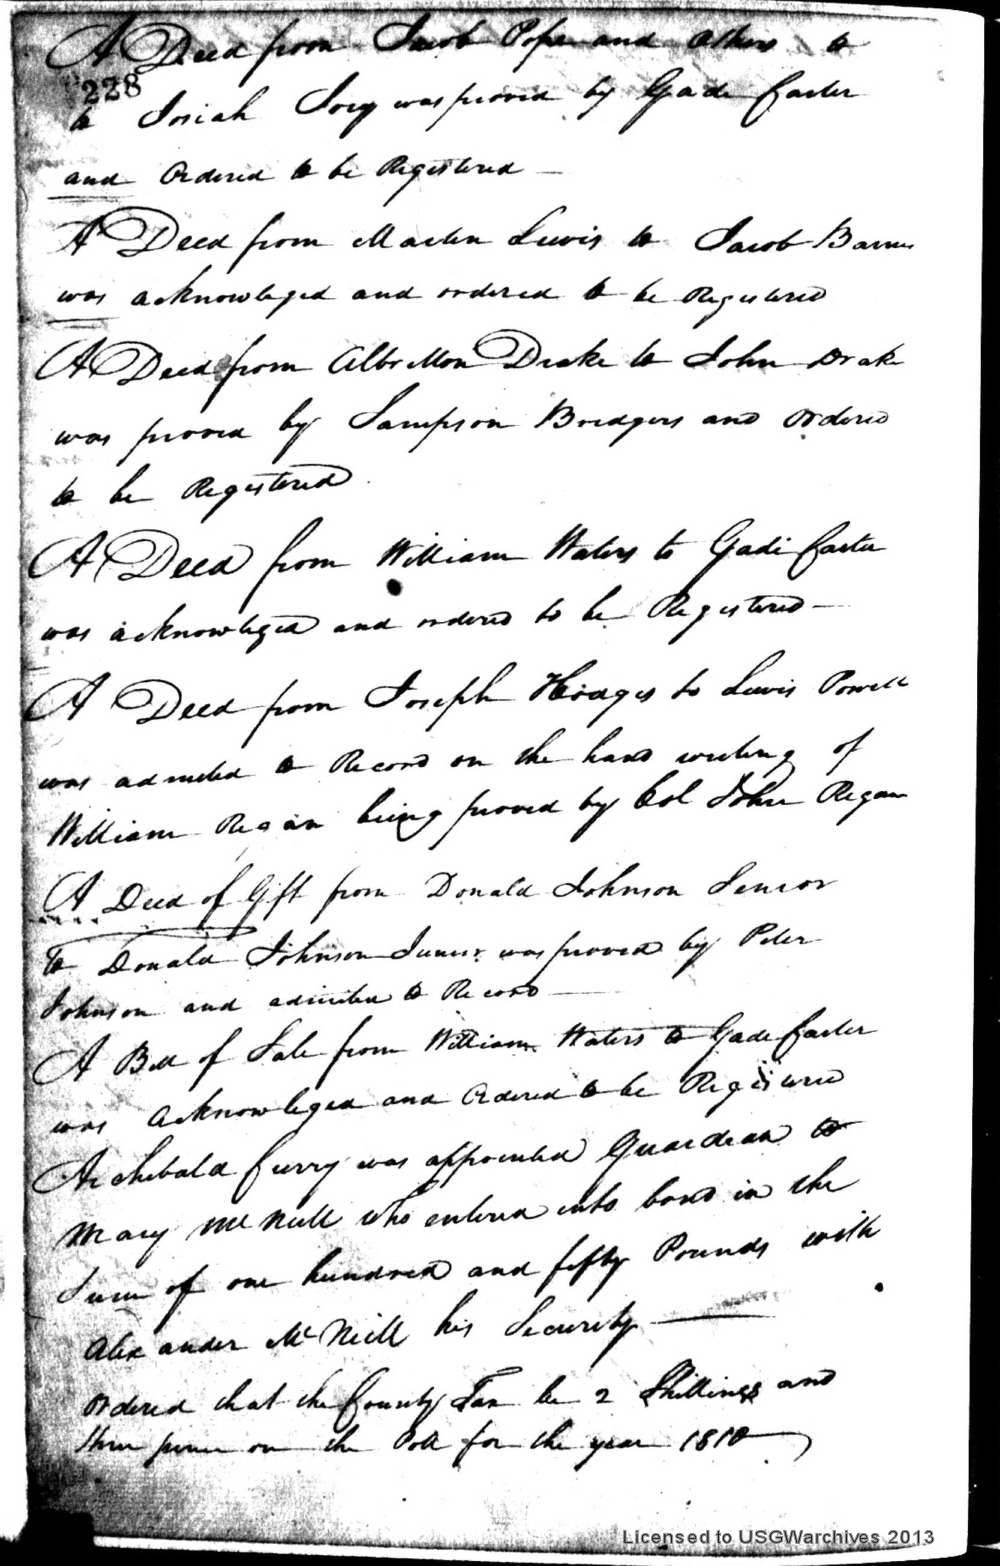 A Deed from Jacob Pope and others to
228
to Josiah Ivey was proved by Gade Carter
and Ordered to be Registered —
A Deed from Martin Lewis to Jacob Barnes
was acknowleged and ordered to be Registered
A Deed from Albritton Drake to John Drake
was proved by Sampson Bridgers and ordered
to be Registered
A Deed from William Waters to Gadi Carter
was acknowleged and ordered to be Registered —
A Deed from Joseph Hodges to Lewis Powell
was admited to Record on the hand writing of
William Regan being proved by Col John Regan
A Deed of Gift from Donald Johnson Senior
to Donald Johnson Junior was proved by Peter
Johnson and admited to Record —
A Bill of Sale from William Waters to Gade Carter
was acknowleged and Ordered to be Registered
Archibald Curry was appointed Guardian to
Mary McNeill who entered into bond in the
Sum of one hundred and fifty Pounds with
Alexander McNeill his Security —
Ordered that the County Tax be 2 Shillings and
three pence on the Poll for the year 1810
Licensed to USGWarchives 2013